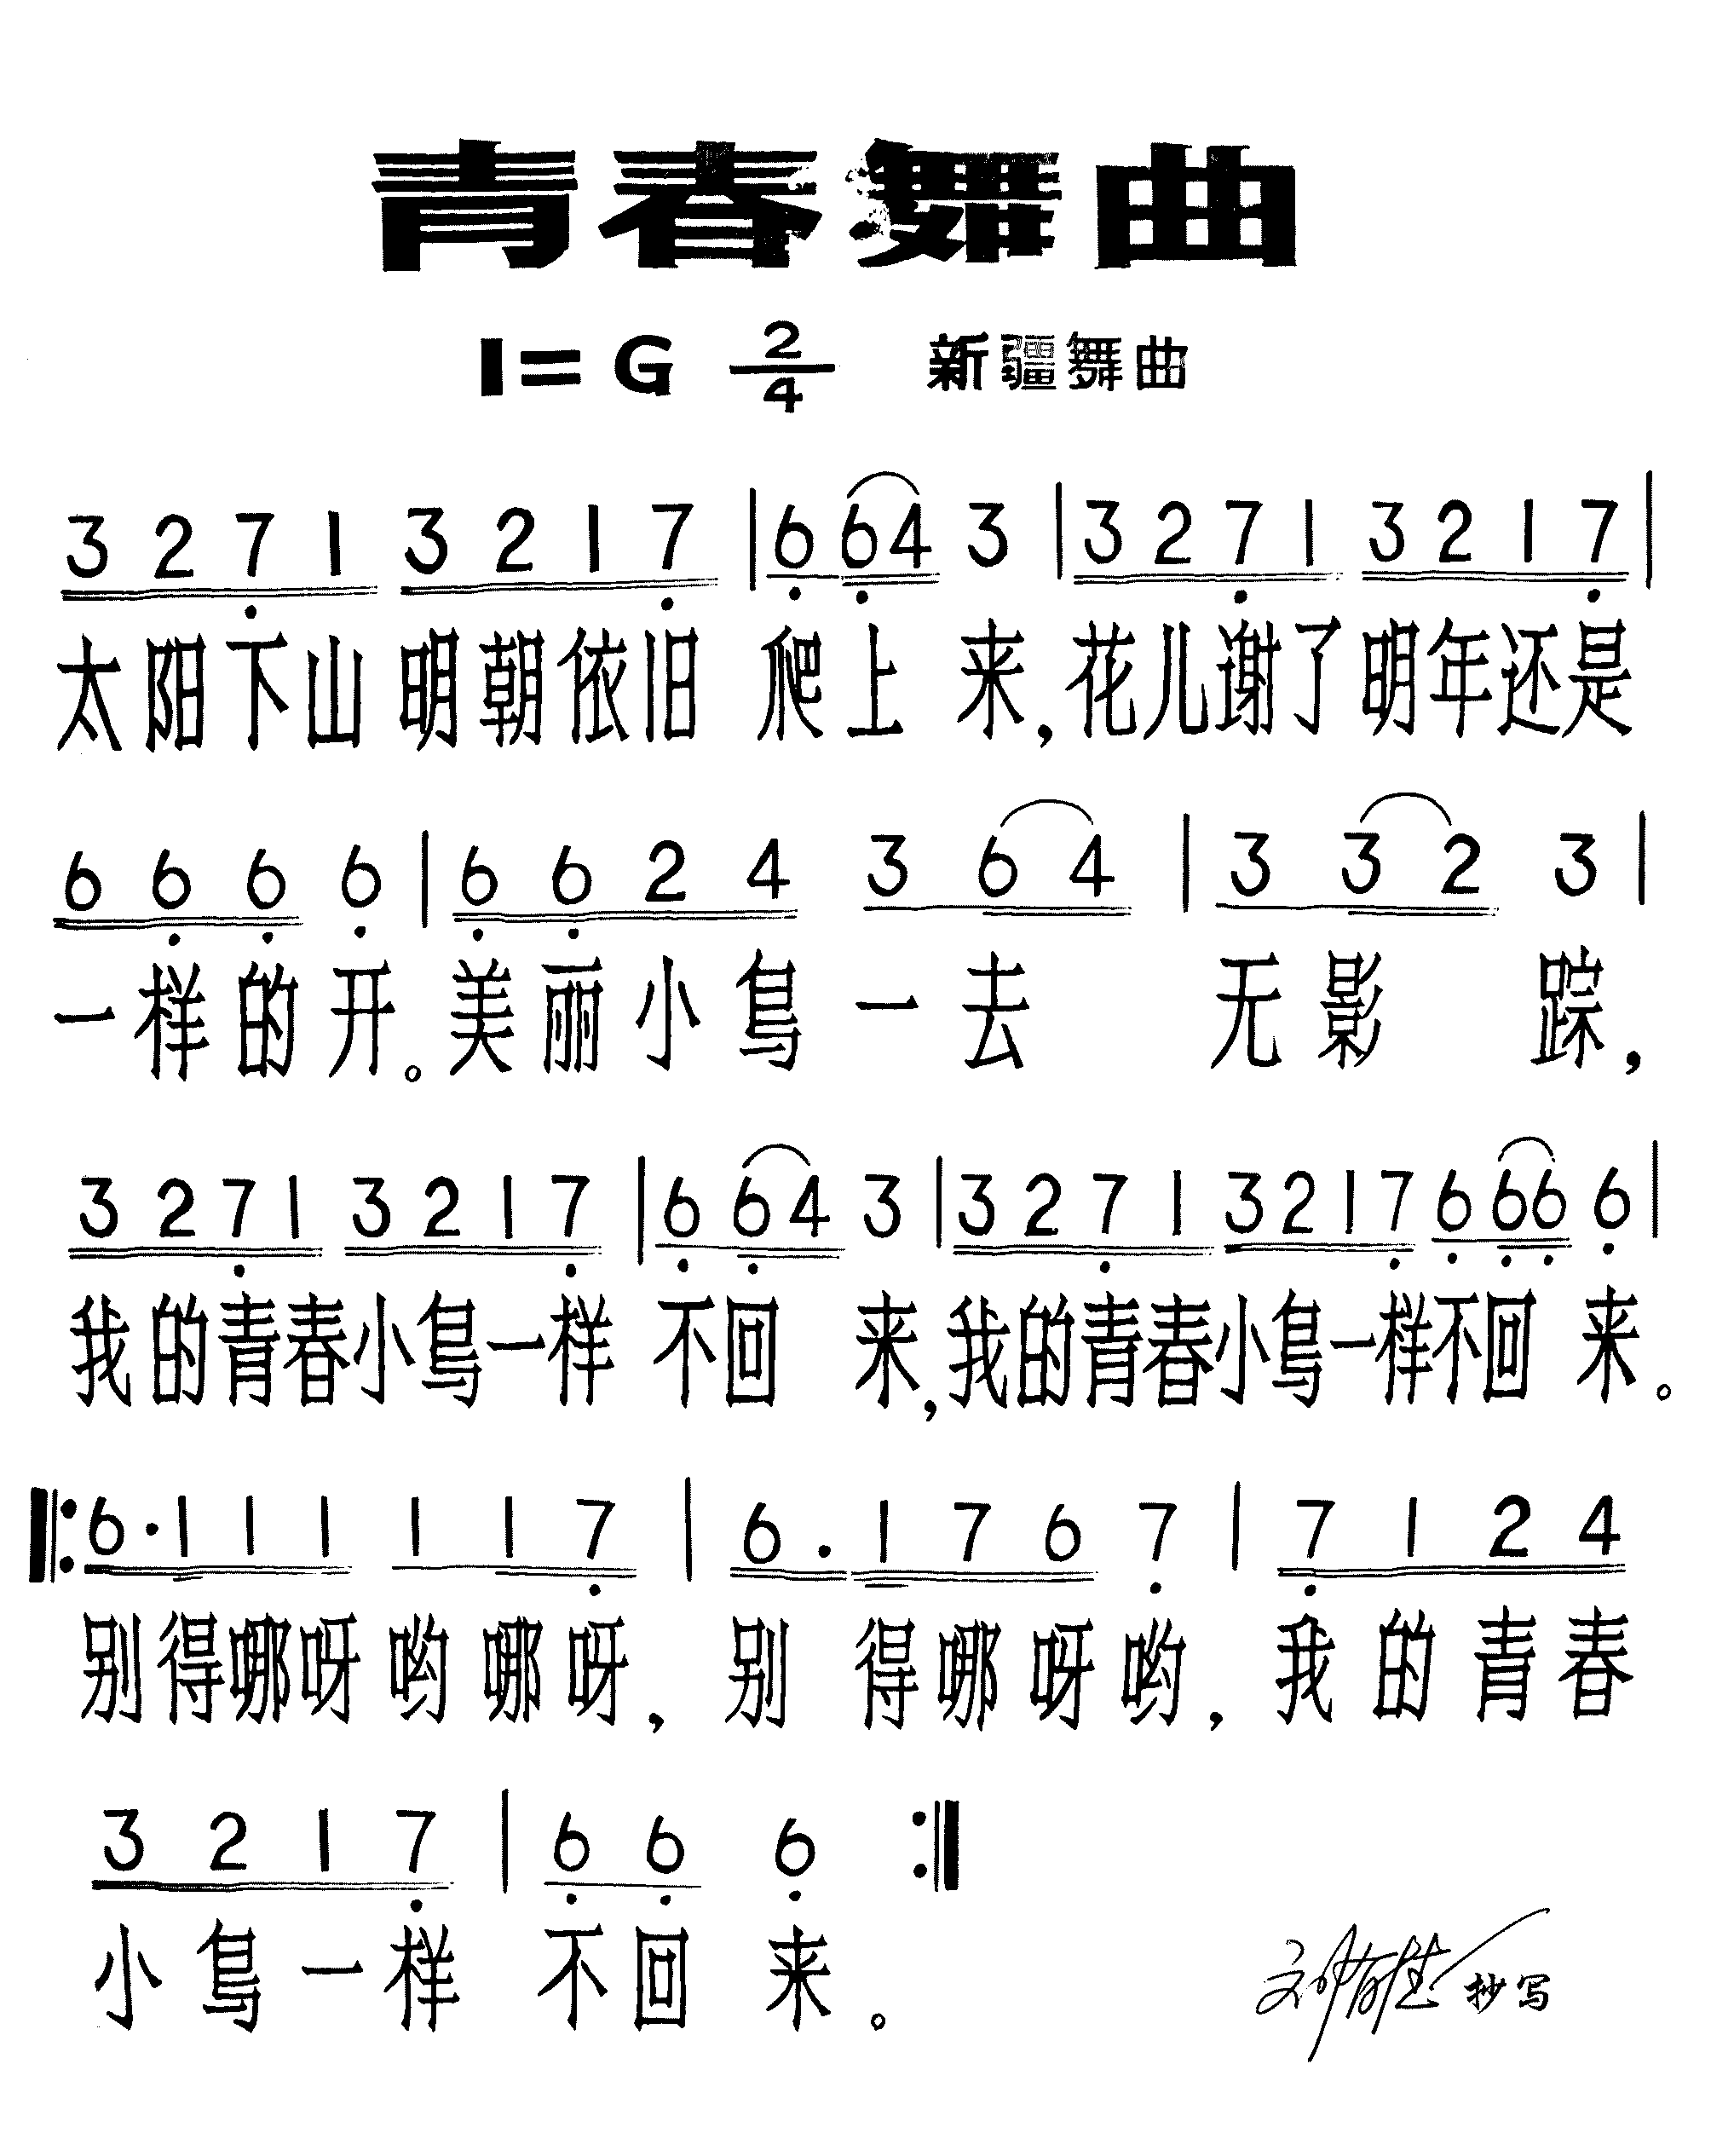 青春舞曲
1=G 2/4 新疆舞曲
3 2 7 1 3 2 1 7 | 6 6 4 3 | 3 2 7 1 3 2 1 7 |
太阳下山明朝依旧爬上来,花儿谢了明年还是
6 6 6 6 | 6 6 2 4 3 6 4 | 3 3 2 3 |
一样的开。美丽小鸟一去无影踪,
3 2 7 1 3 2 1 7 | 6 6 4 3 | 3 2 7 1 3 2 1 7 6 6 6 6 |
我的青春小鸟一样不回来,我的青春小鸟一样不回来。
‖: 6 · 1 1 1 1 1 7 | 6 · 1 7 6 7 | 7 1 2 4
别得哪呀哟哪呀,别得哪呀哟,我的青春
3 2 1 7 | 6 6 6 :‖
小鸟一样不回来。
抄写